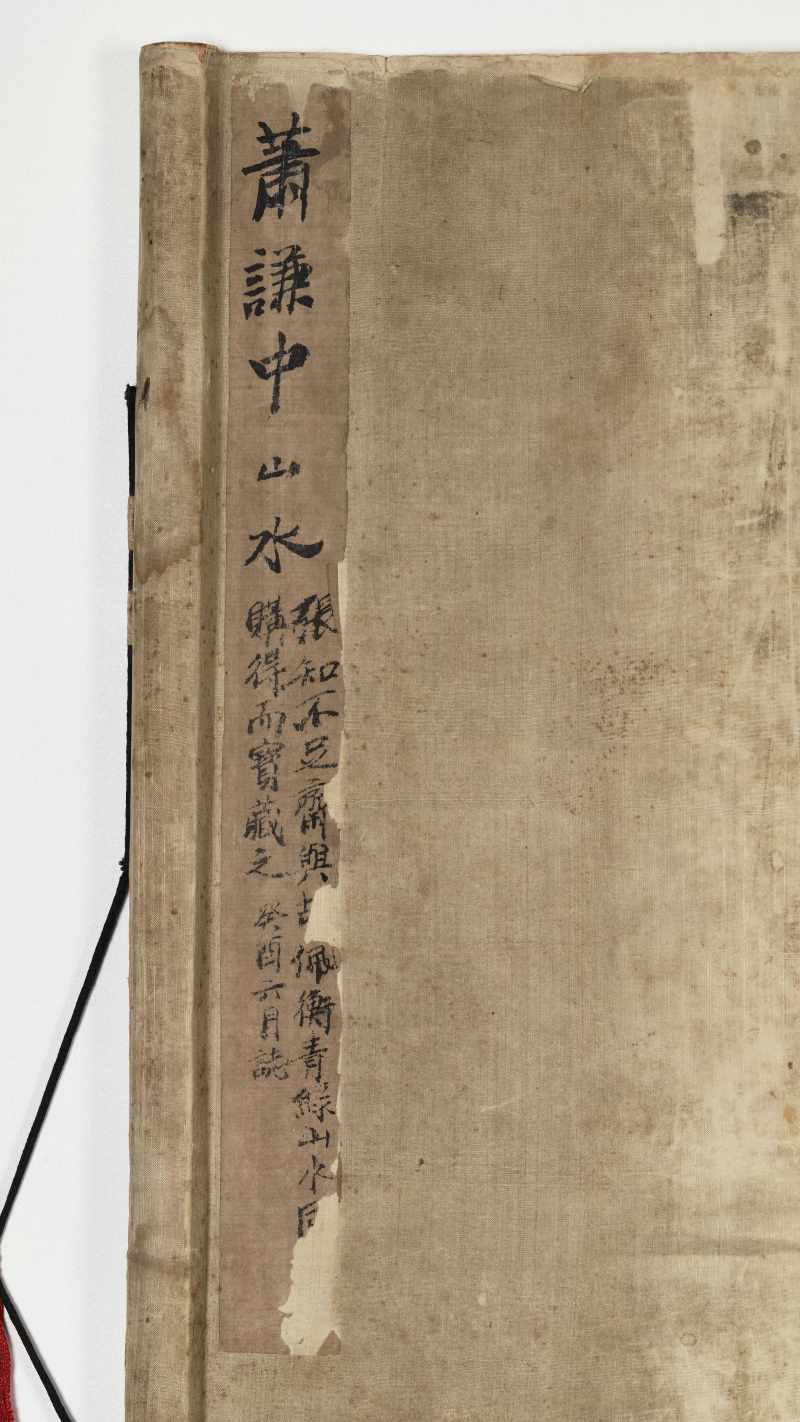 蕭謙中山水
張知不足齋與 佩衡青綠山水同
購得而寶藏之 癸酉六月誌